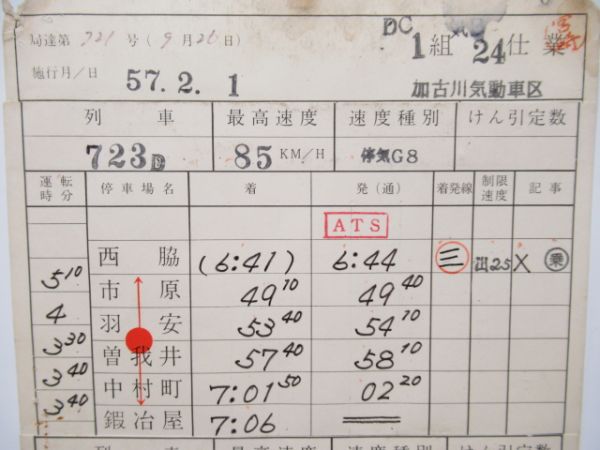 局達第 721 号 (9月26日)
DC 1組 24仕業
施行月／日 57.2.1
加古川気動車区
列車 最高速度 速度種別 けん引定数
723D 85 KM/H 停気G8
運転時分 停車場名 着 発(通) 着発線 制限速度 記事
ATS
西脇 (6:41) 6:44 三 出25 X 乗
5 10
市原 49 10 49 40
4
羽安 53 40 54 10
3 30
曽我井 57 40 58 10
3 40
中村町 7:01 50 02 20
3 40
鍛冶屋 7:06
列車 最高速度 速度種別 けん引定数